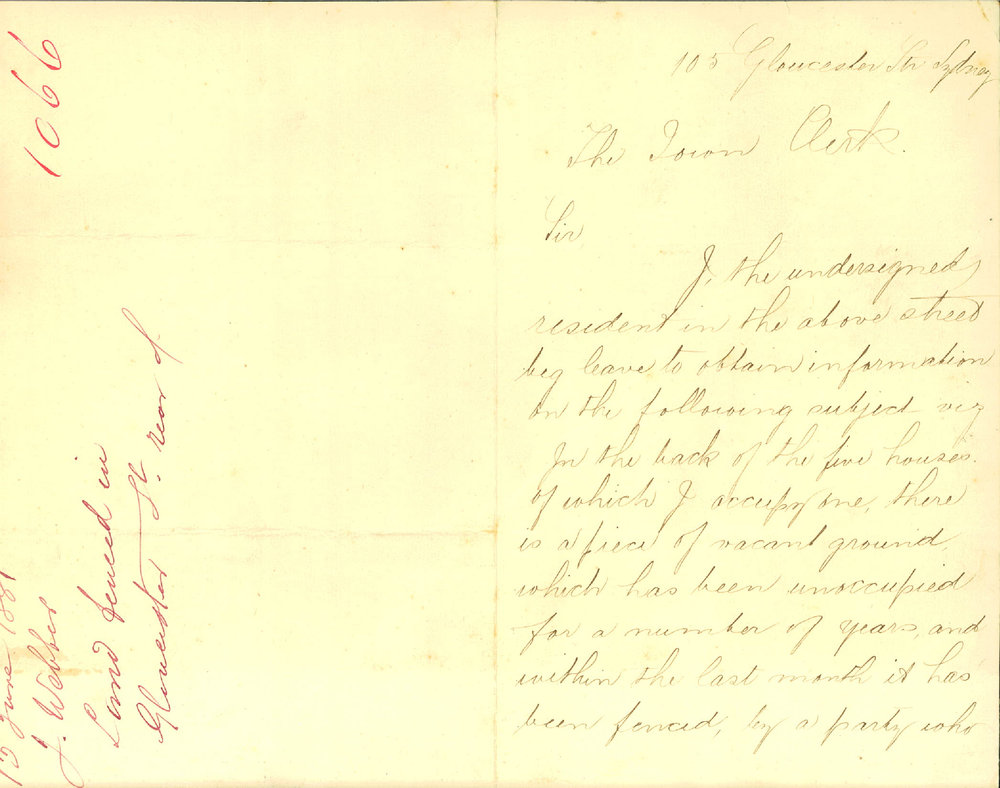 1066
13 June 1881
J. Webber
Land fenced in
Gloucester St. rear of
105 Gloucester Str Sydney
The Town Clerk.
Sir,
I, the undersigned,
resident in the above street
beg leave to obtain information
on the following subject – viz
In the back of the five houses.
of which I occupy one, there
is a piece of vacant ground,
which has been unoccupied
for a number of years, and
within the last month it has
been fenced, by a party who